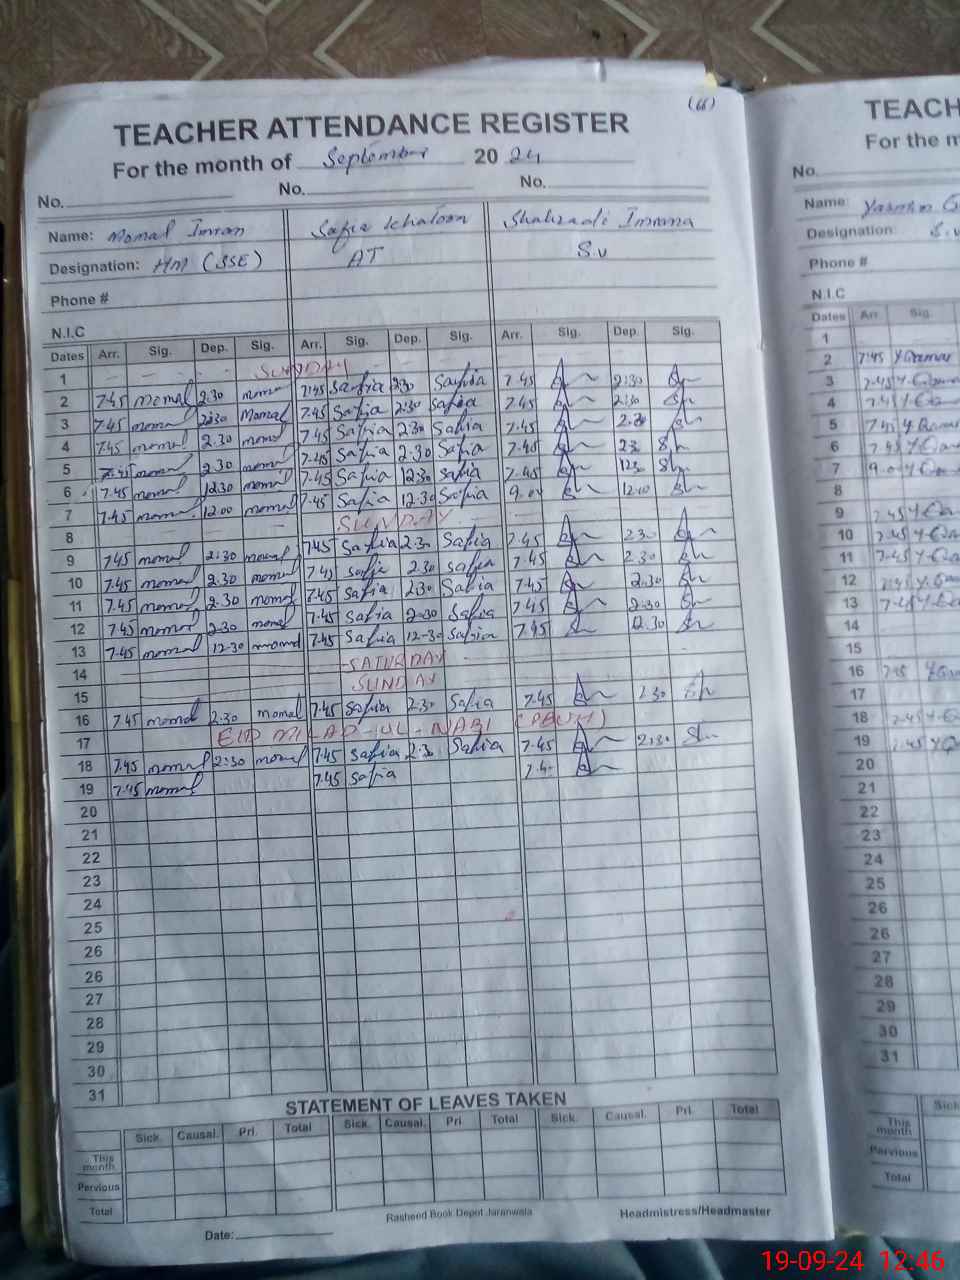 (66)
TEACHER ATTENDANCE REGISTER
For the month of September 2024
No. No. No.
Name: Momal Imran Safia Khatoon Shahzadi Imrana
Designation: HM (SSE) AT S.V
Phone #
N.I.C
Dates Arr. Sig. Dep. Sig. Arr. Sig. Dep. Sig. Arr. Sig. Dep. Sig.
1 SUNDAY
2 7.45 momal 2.30 momal 7.45 Safia 2.30 Safia 7.45 2:30
3 7.45 momal 2:30 Momal 7.45 Safia 2.30 Safia 7.45 2:30
4 7.45 momal 2.30 momal 7.45 Safia 2.30 Safia 7.45 2.30
5 7.45 momal 2.30 momal 7.45 Safia 2.30 Safia 7.45 2.30
6 7.45 momal 12.30 momal 7.45 Safia 12.30 Safia 7.45 12.30
7 7.45 momal 12.00 momal 7.45 Safia 12.30 Safia 9.00 12.00
8 SUNDAY
9 7.45 momal 2:30 momal 7.45 Safia 2.30 Safia 7.45 2.30
10 7.45 momal 2.30 momal 7.45 Safia 2.30 Safia 7.45 2.30
11 7.45 momal 2.30 momal 7.45 Safia 2.30 Safia 7.45 2.30
12 7.45 momal 2.30 momal 7.45 Safia 2.30 Safia 7.45 2.30
13 7.45 momal 12.30 momal 7.45 Safia 12-30 Safia 7.45 12.30
14 SATURDAY
15 SUNDAY
16 7.45 momal 2.30 momal 7.45 Safia 2.30 Safia 7.45 2.30
17 EID MILAD-UL-NABI (PBUH)
18 7.45 momal 2:30 momal 7.45 Safia 2.30 Safia 7.45 2:30
19 7.45 momal 7.45 Safia 7.45
20
21
22
23
24
25
26
26
27
28
29
30
31
STATEMENT OF LEAVES TAKEN
Sick. Causal. Pri. Total Sick. Causal. Pri Total Sick. Causal. Pri. Total
This month
Pervious
Total
Rasheed Book Depot Jaranwala
Headmistress/Headmaster
Date:
TEACH
For the m
No.
Name: Yasmin
Designation S.V
Phone #
N.I.C
Dates Arr. Sig.
1
2 7.45
3 7.45
4 7.45
5 7.45
6 7.45
7 9.00
8
9 7.45
10 7.45
11 7.45
12 7.45
13 7.45
14
15
16 7.45
17
18 7.45
19 7.45
20
21
22
23
24
25
26
26
27
28
29
30
31
Sick
This month
Pervious
Total
19-09-24 12:46